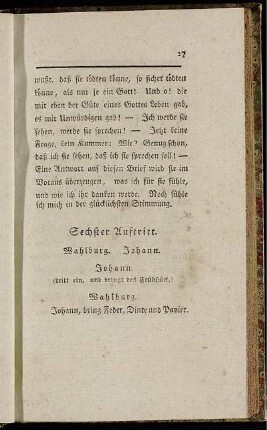 27
wußt, daß sie tödten könne, so sicher tödten
könne, als nur je ein Gott! Und o! die
mit eben der Güte eines Gottes Leben gab,
es mir Unwürdigen gab! — Ich werde sie
sehen, werde sie sprechen! — Jetzt keine
Frage, kein Kummer: Wie? Genug schon,
daß ich sie sehen, daß ich sie sprechen soll! —
Eine Antwort auf diesen Brief wird sie im
Voraus überzeugen, was ich für sie fühle,
und wie ich ihr danken werde. Noch fühle
ich mich in der glücklichsten Stimmung.
Sechster Auftritt.
Wahlburg. Johann.
Johann
(tritt ein, und bringt das Frühstück.)
Wahlburg.
Johann, bring Feder, Dinte und Papier.